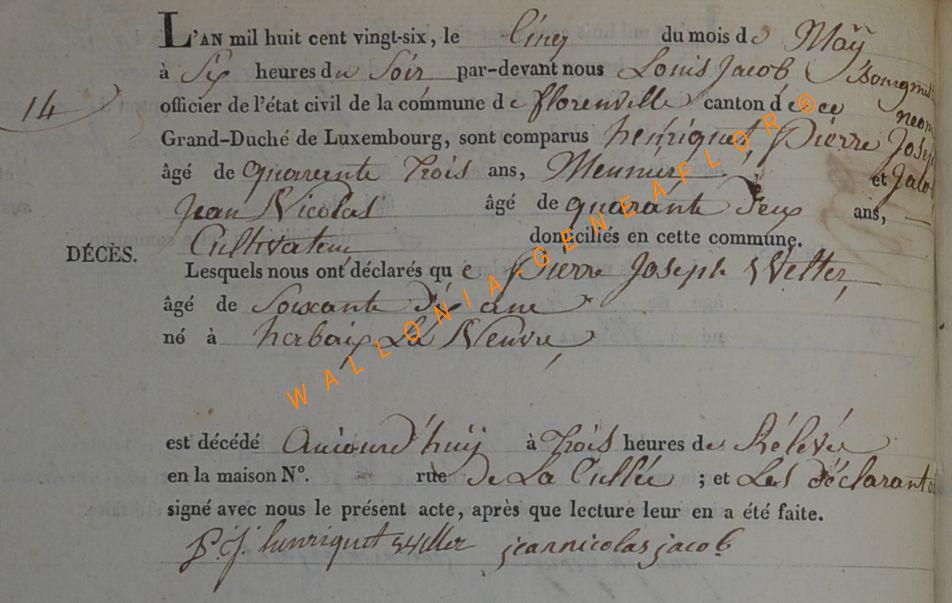 L'AN mil huit cent vingt-six, le Cinq du mois de Maÿ
à Six heures du Soir par-devant nous Louis Jacob Bourgmestre
14 officier de l'état civil de la commune de florenville canton de ce nom
Grand-Duché de Luxembourg, sont comparus henriquet, Pierre Joseph
âgé de quarente trois ans, Meunier et Jacob
Jean Nicolas âgé de quarante Deux ans,
Cultivateur domiciliés en cette commune.
DÉCÈS.
Lesquels nous ont déclarés que Pierre Joseph Welter,
âgé de Soixante Dix ans
né à habaix La Neuvre,
est décédé aujourd'huy à Trois heures de Rélévée
en la maison N°. rue de La Cullée ; et Les déclarant
signé avec nous le présent acte, après que lecture leur en a été faite.
P. J. henriquet jean nicolas jacob
WALLONIA GENEAFLOR ®